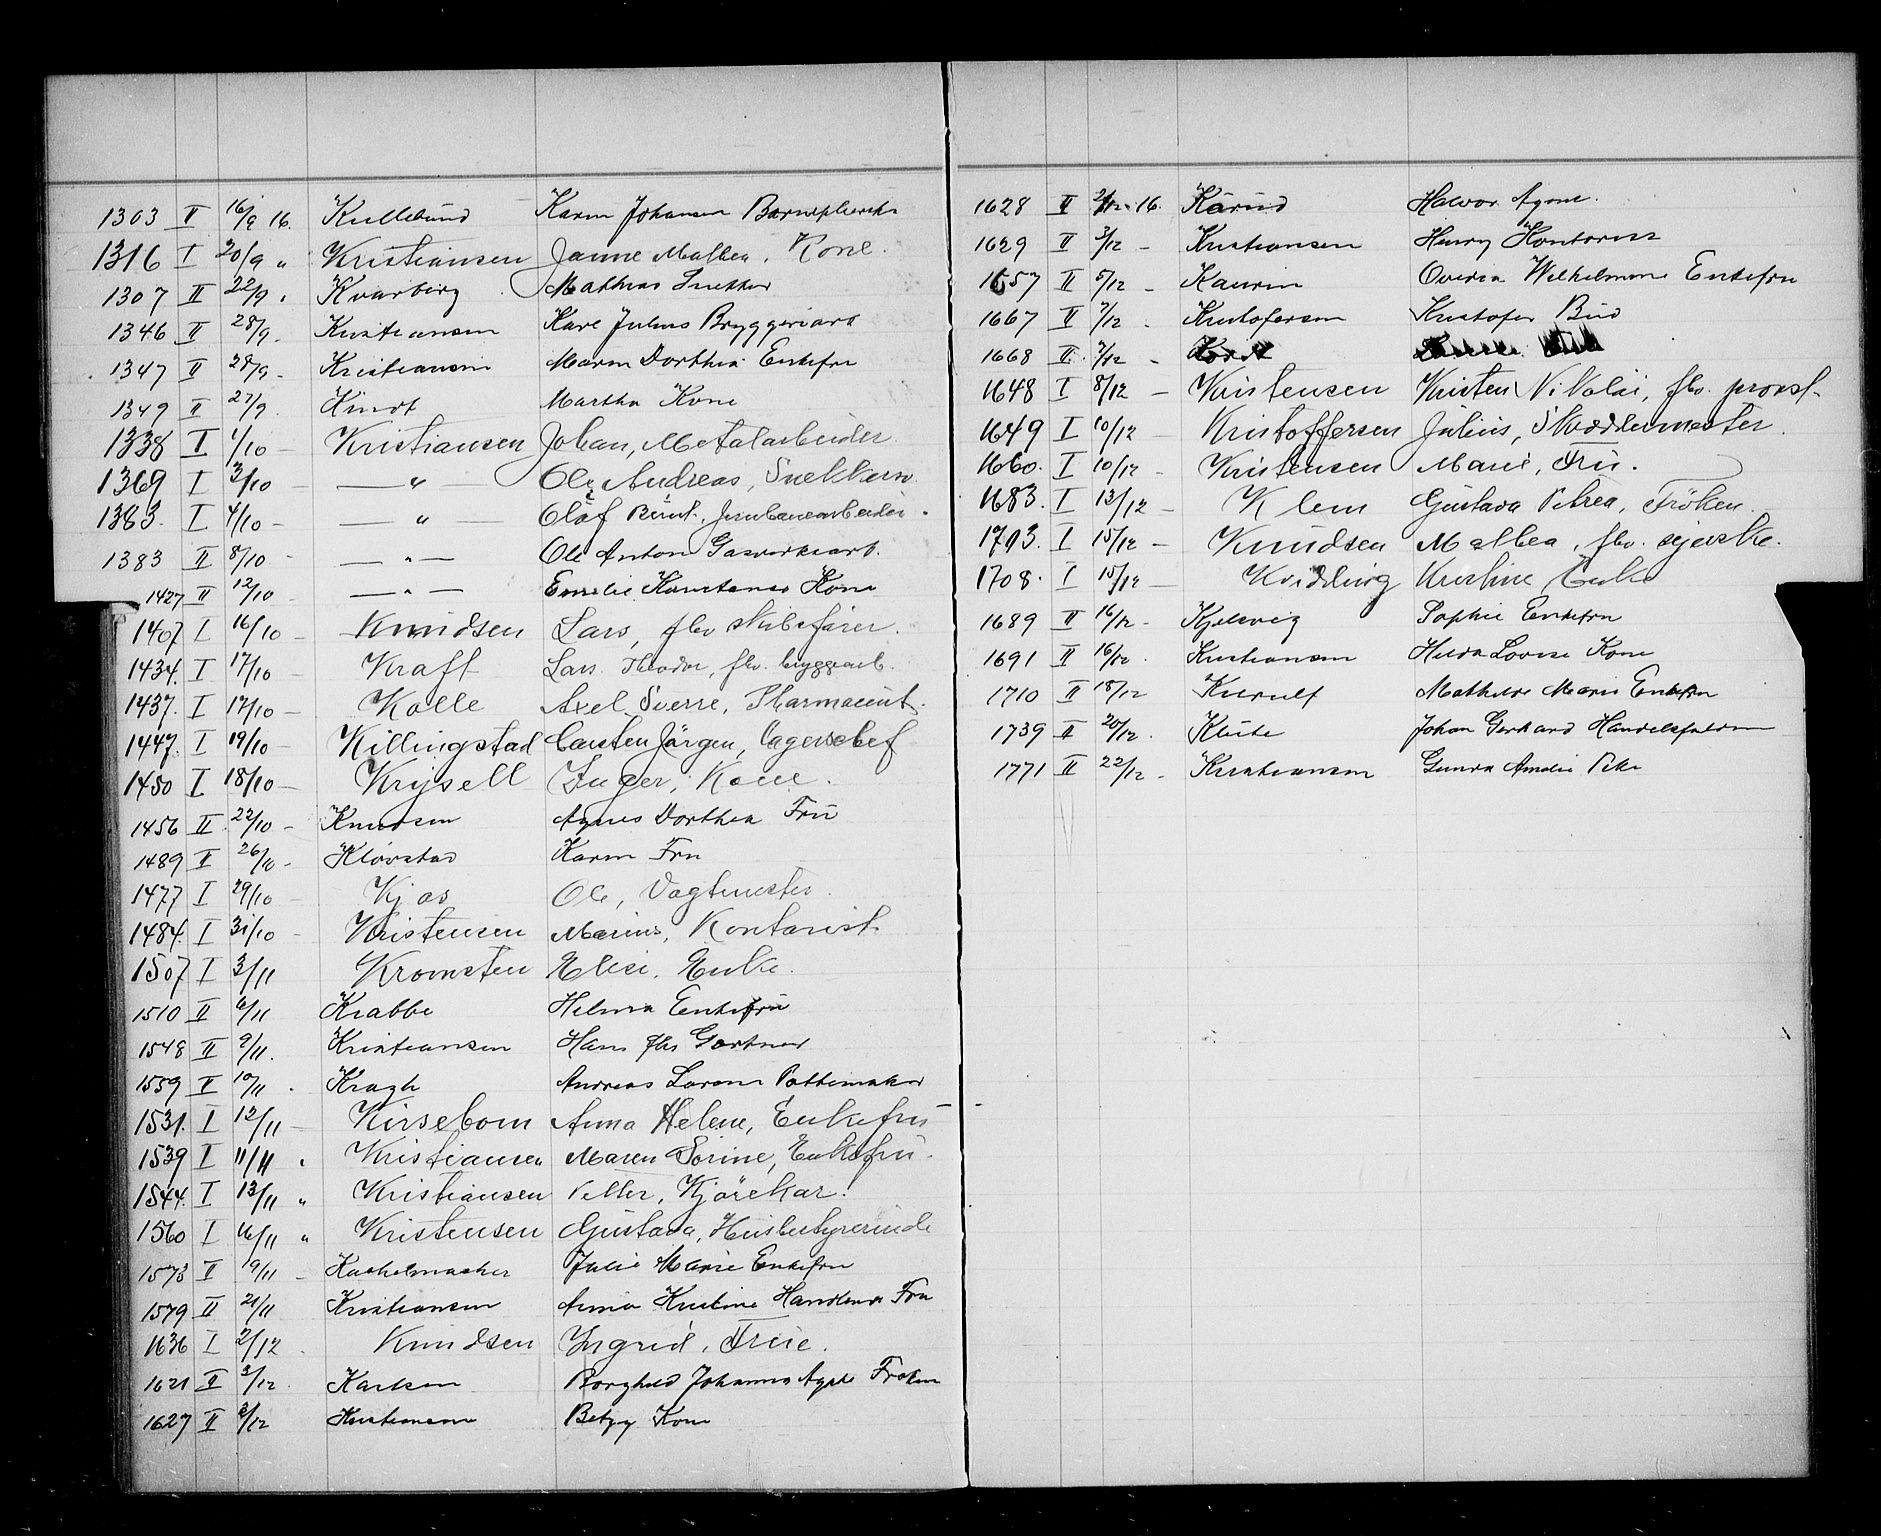 1303 II 16/9 16. Kullebund Karen Johansen Barnepleierske
1316 I 20/9 „ Kristiansen Janne Mathea, Kone.
1307 II 22/9 „ Kvarberg Mathias Snekker
1346 II 28/9 - Kristiansen Karl Julius Bryggeriarb
1347 II 28/9 - Kristiansen Maren Dorthea Enkefru
1349 II 27/9. Kindt Martha Kone
1338 I 1/10 - Kristiansen Johan, Metalarbeider.
1369 I 3/10 - — „ — Ole Andreas, Snekkersv.
1363. I 4/10 - — „ — Olaf Bernt. Jernbanearbeider.
1383 II 8/10 - — „ — Ole Anton Gasverksarb.
1427 II 12/10 - — „ — Emilie Konstanse Kone
1407 I 16/10 - Knudsen Lars, fhv skibsfører.
1434. I 17/10 - Kraft Lars Theodor, fhv. bryggearb.
1437. I 17/10 - Kolle Axel Sverre, Pharmaceut.
1447. I 19/10 - Killingstad Carsten Jörgen, Lagerchef
1450 I 18/10 - Krysell Inger, Kone.
1456 II 22/10 - Knudsen Agnes Dorthea Fru
1489 II 26/10 - Kløvstad Karen Fru
1477 I 29/10 - Kjos Ole, Vagtmester.
1484. I 31/10 - Kristensen Marius, Kontorist.
1507 I 3/11 Kromsten Elise, Enke.
1510 II 6/11 Krabbe Helma Enkefru
1548 II 9/11. Kristiansen Hans fhv Gartner
1559 II 10/11. Kragh Andreas Lorens Pottemaker
1531. I 12/11 - Kirsebom Anna Helene, Enkefru -
1539 I 11/11 „ Kristiansen Maren Sorine, Enkefru.
1544. I 13/11 „ Kristiansen Petter, Kjörekar.
1560 I 16/11 „ Kristensen Gustava, Husbestyrerinde
1573 II 19/11 - Kachelmacher Julie Marie Enkefru
1579 II 21/11 Kristiansen Anna Kristine Handlende Fru
1636 I 2/12. Knudsen Ingrid, Frue.
1621 II 2/12. Karlsen Borghild Johanna Frøken
1627 II 2/12 Kristiansen Betzy Kone
1628 II 2/12 - 16. Kårud Halvor Agent.
1629 II 3/12 - Kristiansen Henry Kontorist
1657 II 5/12 - Kaurin Ovedia Wilhelmine Enkefru
1667 II 7/12 - Kristofersen Kristofer Bud
1668 II. 7/12 -
1648 I 8/12 - Kristensen Kristen Nikolai, fhv. provst.
1649 I 10/12 - Kristoffersen Julius, Skræddermester.
1660. I 10/12 - Kristensen Marie, Fru.
1683. I 13/12 - Klem Gustava Petrea, Fröken.
1703. I 15/12 - Knudsen Mathea, fhv. sjerske.
1708. I 15/12 - Kvidding Kristine Enke
1689 II 16/12 - Kjelsvig Sophie Enkefru
1691 II 16/12. Kristiansen Hilda Lovise Kone
1710 II 18/12 Kierulf Mathilde Marie Enkefru
1739 II 20/12. Klüte Johan Gerhard Handelsfuldm
1771 II 22/12 - Kristiansen Gunda Amalie Pike